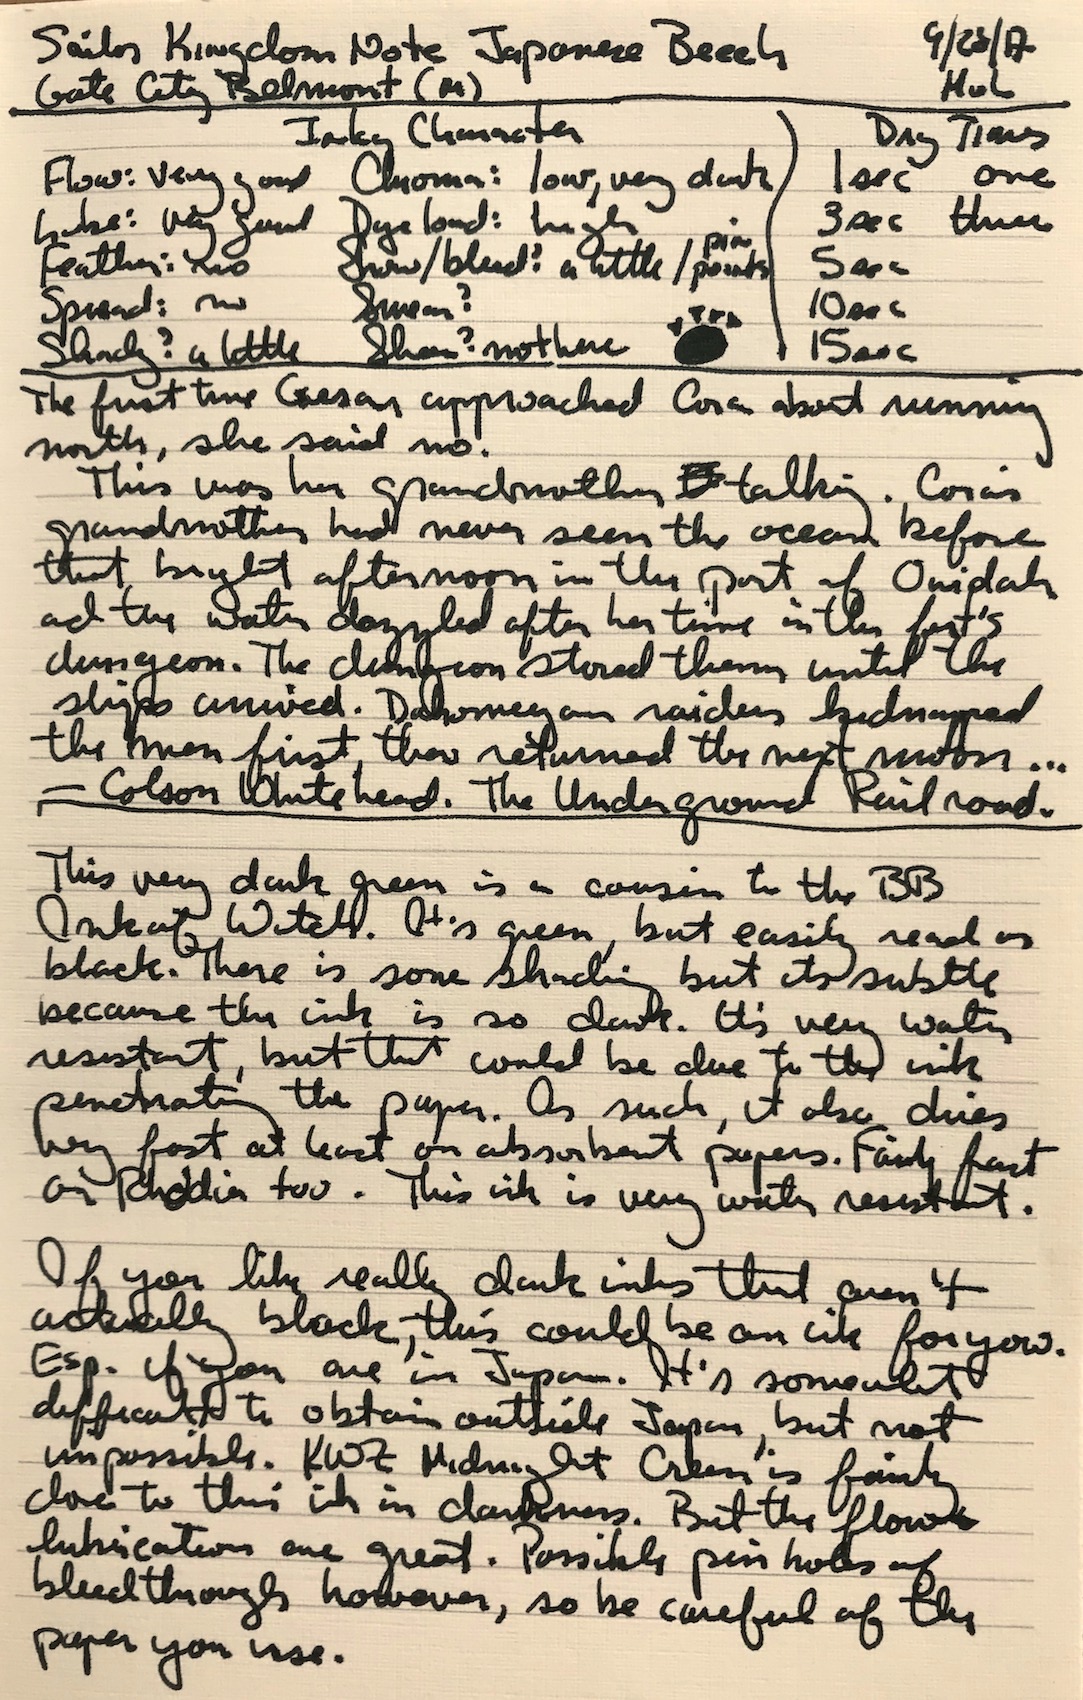 Sailor Kingdom Note Japanese Beech 9/28/17
Gate City Belmont (M)
Inky Character Dry Times
Flow: very good Chroma: low, very dark 1sec one
Lube: very good Dye load: high 3sec three
Feather: no Show/bleed? a little / pin points 5sec
Spread: no Smear? 10sec
Shady? a little Sheen? not here 15sec
The first time Caesar approached Cora about running
north, she said no.
This was her grandmother talking. Cora's
grandmother had never seen the ocean before
that bright afternoon in the port of Ouidah
ad the water dazzled after her time in the fort's
dungeon. The dungeon stored them until the
ships arrived. Dahomeyan raiders kidnapped
the men first, then returned the next moon ...
— Colson Whitehead. The Underground Railroad.
This very dark green is a cousin to the BB
Ink of Witch. It's green, but easily read as
black. There is some shading but its subtle
because the ink is so dark. It's very water
resistant, but that could be due to the ink
penetrating the paper. As such, it also dries
very fast at least on absorbent papers. Fairly fast
on Rhodia too. This ink is very water resistant.
If you like really dark inks that aren't
actually black, this could be an ink for you.
Esp. if you are in Japan. It's somewhat
difficult to obtain outside Japan, but not
impossible. KWZ Midnight Green is fairly
close to this ink in darkness. But the flow &
lubrication are great. Possible pin holes of
bleedthrough however, so be careful of the
paper you use.